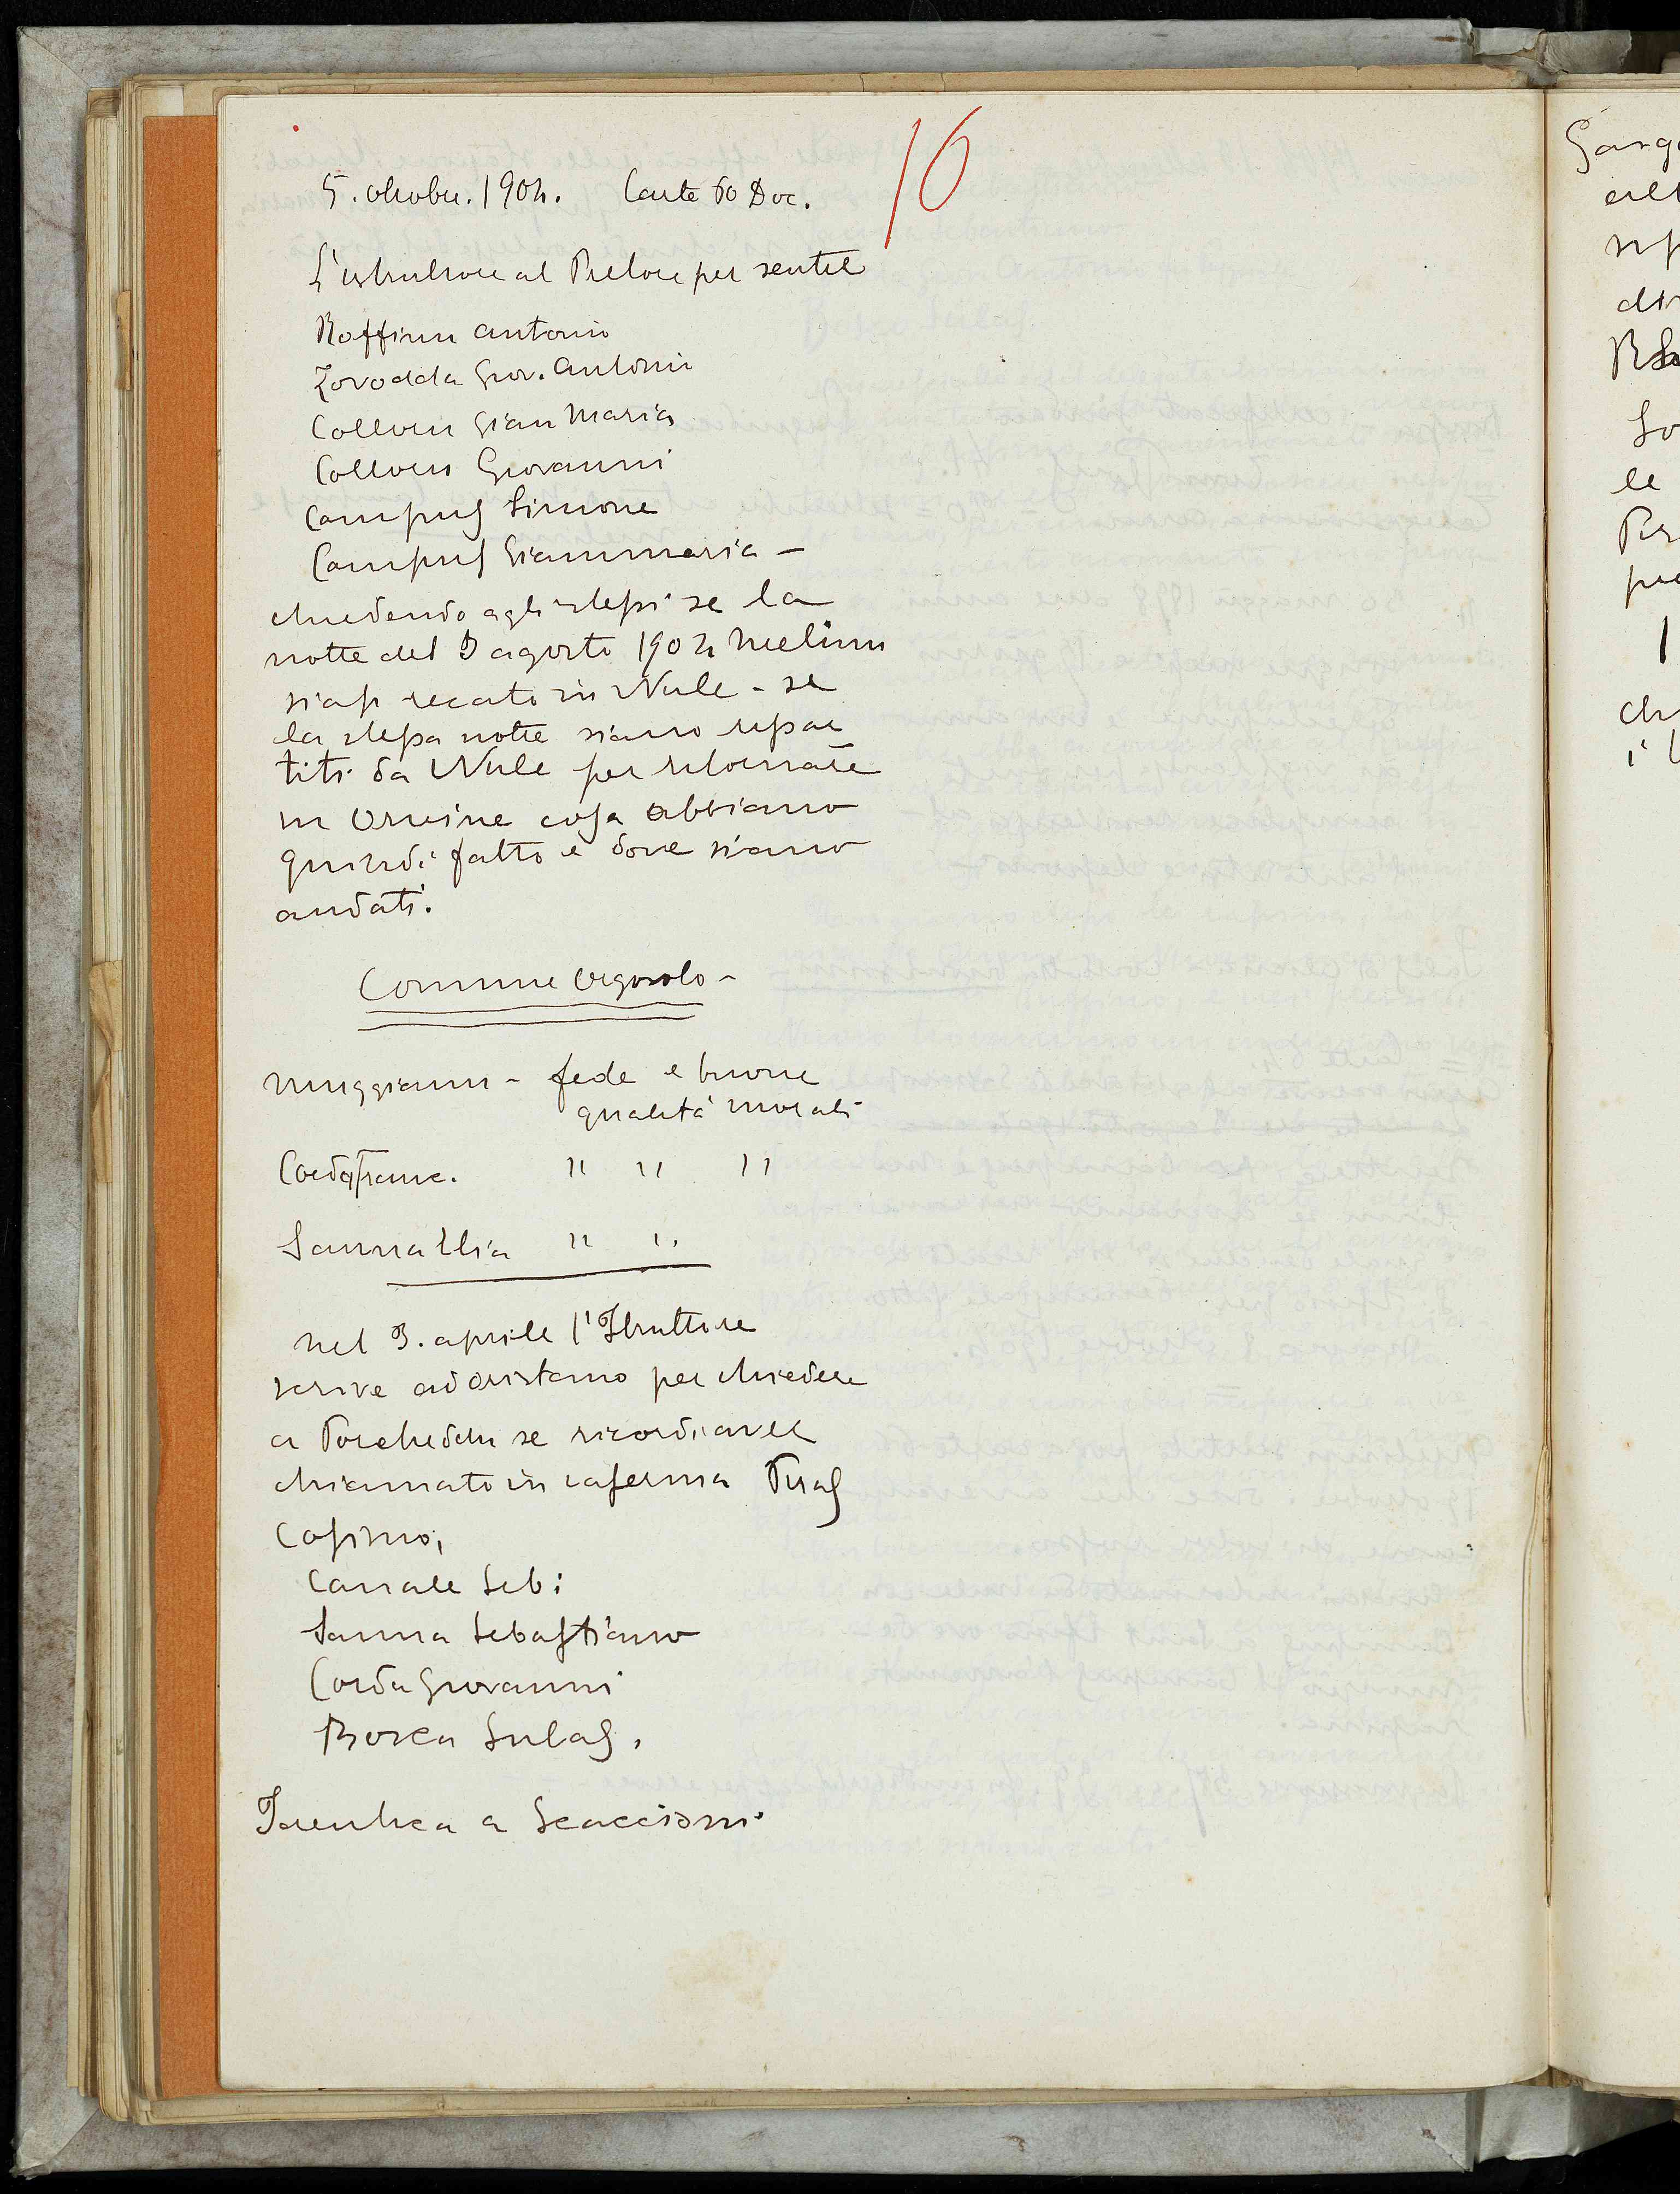 16
5. ottobre. 1904. Carte 60 Doc.
L'istruttore al Pretore per sentire
Boffinu Antonio
Zorodda Giov. Antonio
Collevu Gian Maria
Colleviu Giovanni
Campus Simone
Campus Gianmaria -
chiedendo agli stessi se la
notte del 3 agosto 1904 Melinu
siasi recato in Nule - se
la stessa notte siano ripar
titi da Nule per ritornare
in Orvine cosa abbiano
quindi fatto e dove siano
andati.
Comune Orgosolo -
Muggianu - fede e buone
qualità morali
Corda Franc. " " "
Sanna Elia " "
Nel 3. aprile l'Istruttore
scrive ad Oristano per chiedere
a Porcheddu se ricordi aver
chiamato in caserma Piras
Cosimo,
Carrale Seb:
Sanna Sebastiano
Corda Giovanni
Bosca Sulas.
Identica a Scaccioni